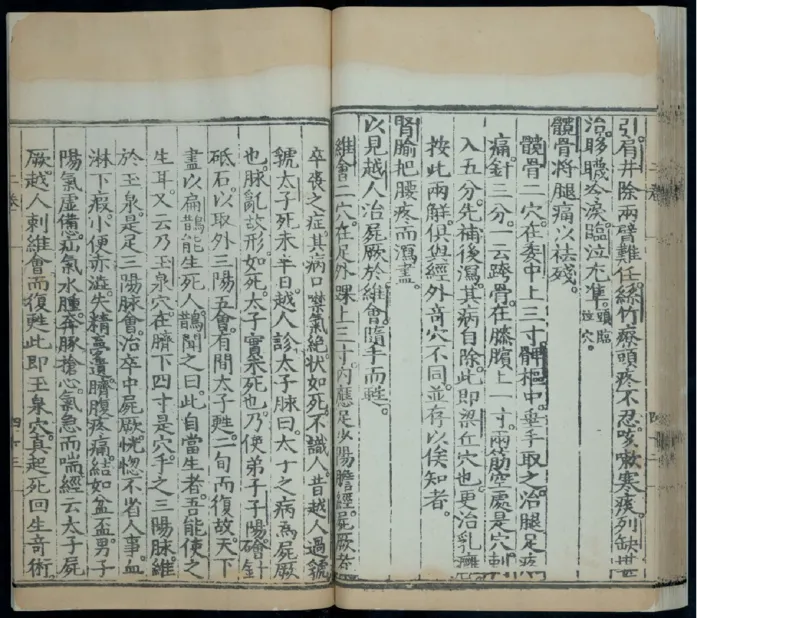 引。肩井除兩臂難任。絲竹療頭疼不忍。咳嗽寒痰。列缺堪
治。眵䁾冷淚。臨泣尤準。頭臨泣穴。
髖骨將腿痛以祛殘。
髖骨二穴。在委中上三寸。髀樞中。垂手取之。治腿足疼
痛。針三分。一云跨骨。在膝臏上一寸。兩筋空處是穴。刺
入五分。先補後瀉。其病自除。此即梁丘穴也。更治乳癰。
按此兩解。俱與經外奇穴不同。並存以俟知者。
腎腧把腰疼而瀉盡。
以見越人治屍厥於維會。隨手而甦。
維會二穴。在足外踝上三寸。內應足少陽膽經。屍厥者。
卒喪之症。其病口噤氣絕。狀如死。不識人。昔越人過虢。
虢太子死未半日。越人診太子脉曰。太子之病為屍厥
也。脉亂故形如死。太子實未死也。乃使弟子子陽。礪針
砥石。以取外三陽五會。有間太子甦。二旬而復。故天下
盡以扁鵲能生死人。鵲聞之曰。此自當生者。吾能使之
生耳。又云乃玉泉穴。在臍下四寸是穴。手之三陽脉維
於玉泉。是足三陽脉會。治卒中屍厥。恍惚不省人事。血
淋下瘕。小便赤澁。失精夢遺。臍腹疼痛。結如盆盃。男子
陽氣虛憊。疝氣水腫。奔豚搶心。氣急而喘。經云太子屍
厥。越人刺維會而復甦。此即玉泉穴。真起死回生奇術。
二卷
四十三